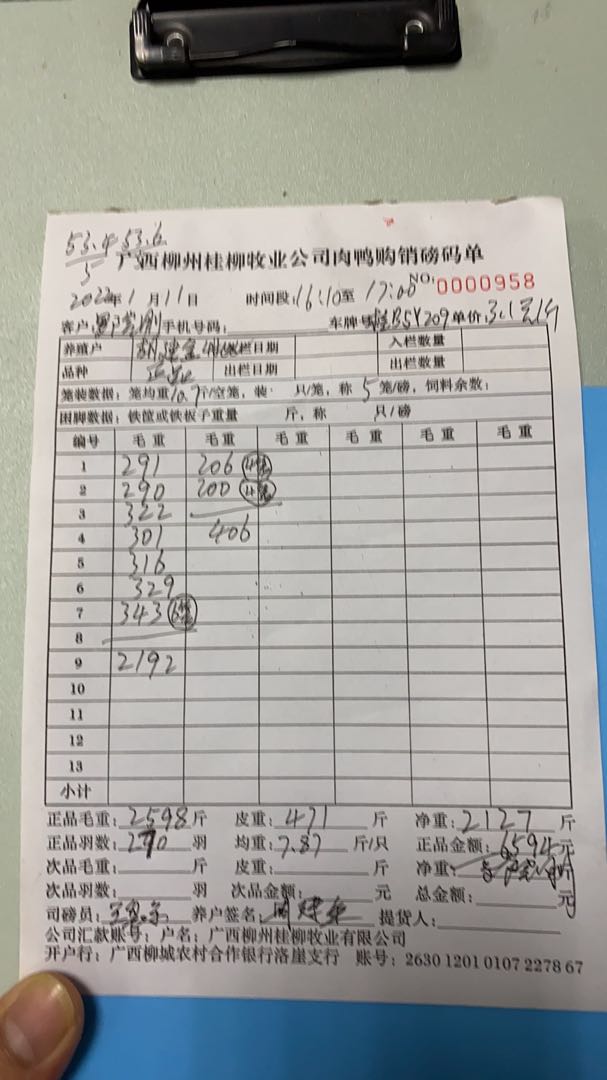 53.4 53.6
5
广西柳州桂柳牧业公司肉鸭购销磅码单
NO: 0000958
2022年1月11日 时间段:16:10至17:00
客户: 手机号码: 车牌号:桂B5Y209 单价:3.1元/斤
养殖户 日期 入栏数量
品种 正品 出栏日期 出栏数量
笼装数据:笼均重10.7斤/空笼,装 只/笼,称5笼/磅,饲料余数:
困脚数据:铁筐或铁板子重量 斤,称 只/磅
编号 毛重 毛重 毛重 毛重 毛重 毛重
1 291 206 4笼
2 290 200 4笼
3 322
4 301 406
5 316
6 329
7 343 6笼
8
9 2192
10
11
12
13
小计
正品毛重:2598斤 皮重:471斤 净重:2127斤
正品羽数:270羽 均重:7.87斤/只 正品金额:6594元
次品毛重: 斤 皮重: 斤 净重: 斤
次品羽数: 羽 次品金额: 元 总金额: 元
司磅员: 养户签名: 提货人:
公司汇款账号:户名:广西柳州桂柳牧业有限公司
开户行:广西柳城农村合作银行洛崖支行 账号:2630 1201 0107 2278 67